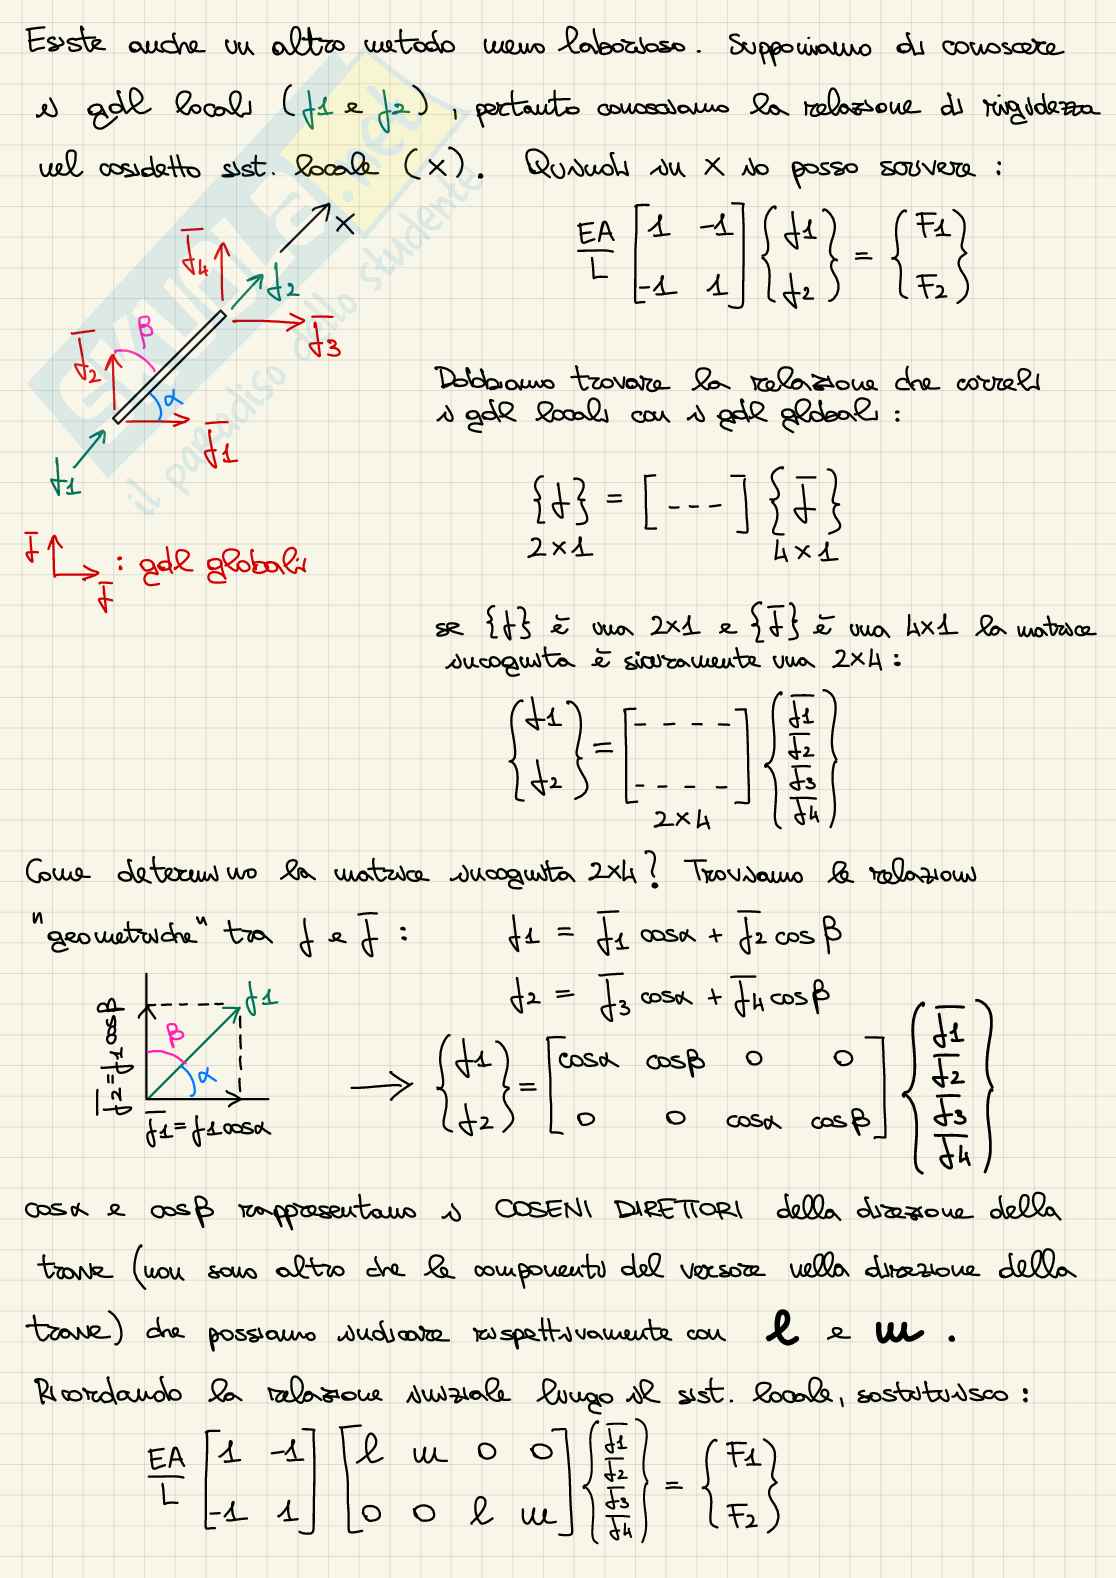 Esiste anche un altro metodo meno laborioso. Supponiamo di conoscere
i gdl locali (f1 e f2), pertanto conosciamo la relazione di rigidezza
nel cosidetto sist. locale (X). Quindi su X io posso scrivere:
EA/L [1 -1; -1 1] {f1; f2} = {F1; F2}
X
f̄4
f2
β
f̄3
f̄2
α
f̄1
f1
Dobbiamo trovare la relazione che correli
i gdl locali con i gdl globali:
{f} = [---] {f̄}
2×1 4×1
f̄ f̄ : gdl globali
se {f} è una 2×1 e {f̄} è una 4×1 la matrice
incognita è sicuramente una 2×4:
{f1; f2} = [- - - -; - - - -] {f̄1; f̄2; f̄3; f̄4}
2×4
Come determino la matrice incognita 2×4? Troviamo le relazioni
"geometriche" tra f e f̄: f1 = f̄1 cosα + f̄2 cosβ
f2 = f̄3 cosα + f̄4 cosβ
f1
β
α
f̄2 = f1 cosβ
f̄1 = f1 cosα
→ {f1; f2} = [cosα cosβ 0 0; 0 0 cosα cosβ] {f̄1; f̄2; f̄3; f̄4}
cosα e cosβ rappresentano i COSENI DIRETTORI della direzione della
trave (non sono altro che le componenti del versore nella direzione della
trave) che possiamo indicare rispettivamente con l e m.
Ricordando la relazione iniziale lungo il sist. locale, sostituisco:
EA/L [1 -1; -1 1] [l m 0 0; 0 0 l m] {f̄1; f̄2; f̄3; f̄4} = {F1; F2}
il paradiso dello studente